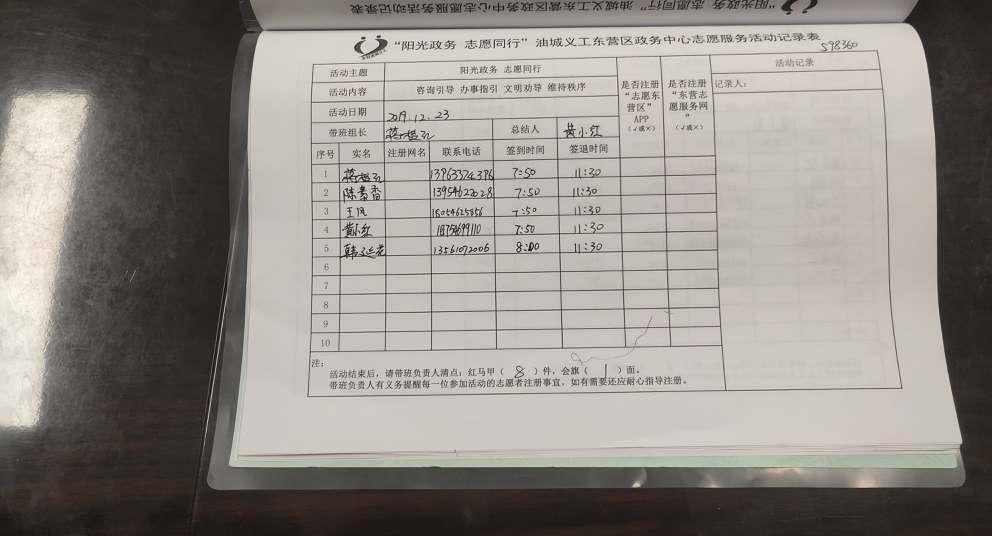 “阳光政务 志愿同行”油城义工东营区政务中心志愿服务活动记录表
“阳光政务 志愿同行”油城义工东营区政务中心志愿服务活动记录表
598360
活动主题 阳光政务 志愿同行 是否注册“志愿东营区”APP（√或×） 是否注册“东营志愿服务网”（√或×） 活动记录
活动内容 咨询引导 办事指引 文明劝导 维持秩序 记录人：
活动日期 2019.12.23
带班组长 总结人 黄小红
序号 实名 注册网名 联系电话 签到时间 签退时间
1 13963374396 7:50 11:30
2 陈景香 13954622028 7:50 11:30
3 王凤 18054625856 7:50 11:30
4 黄小红 18754699110 7:50 11:30
5 韩 13561072006 8:00 11:30
6
7
8
9
10
注：
活动结束后，请带班负责人清点：红马甲（ 8 ）件，会旗（ 1 ）面。
带班负责人有义务提醒每一位参加活动的志愿者注册事宜，如有需要还应耐心指导注册。